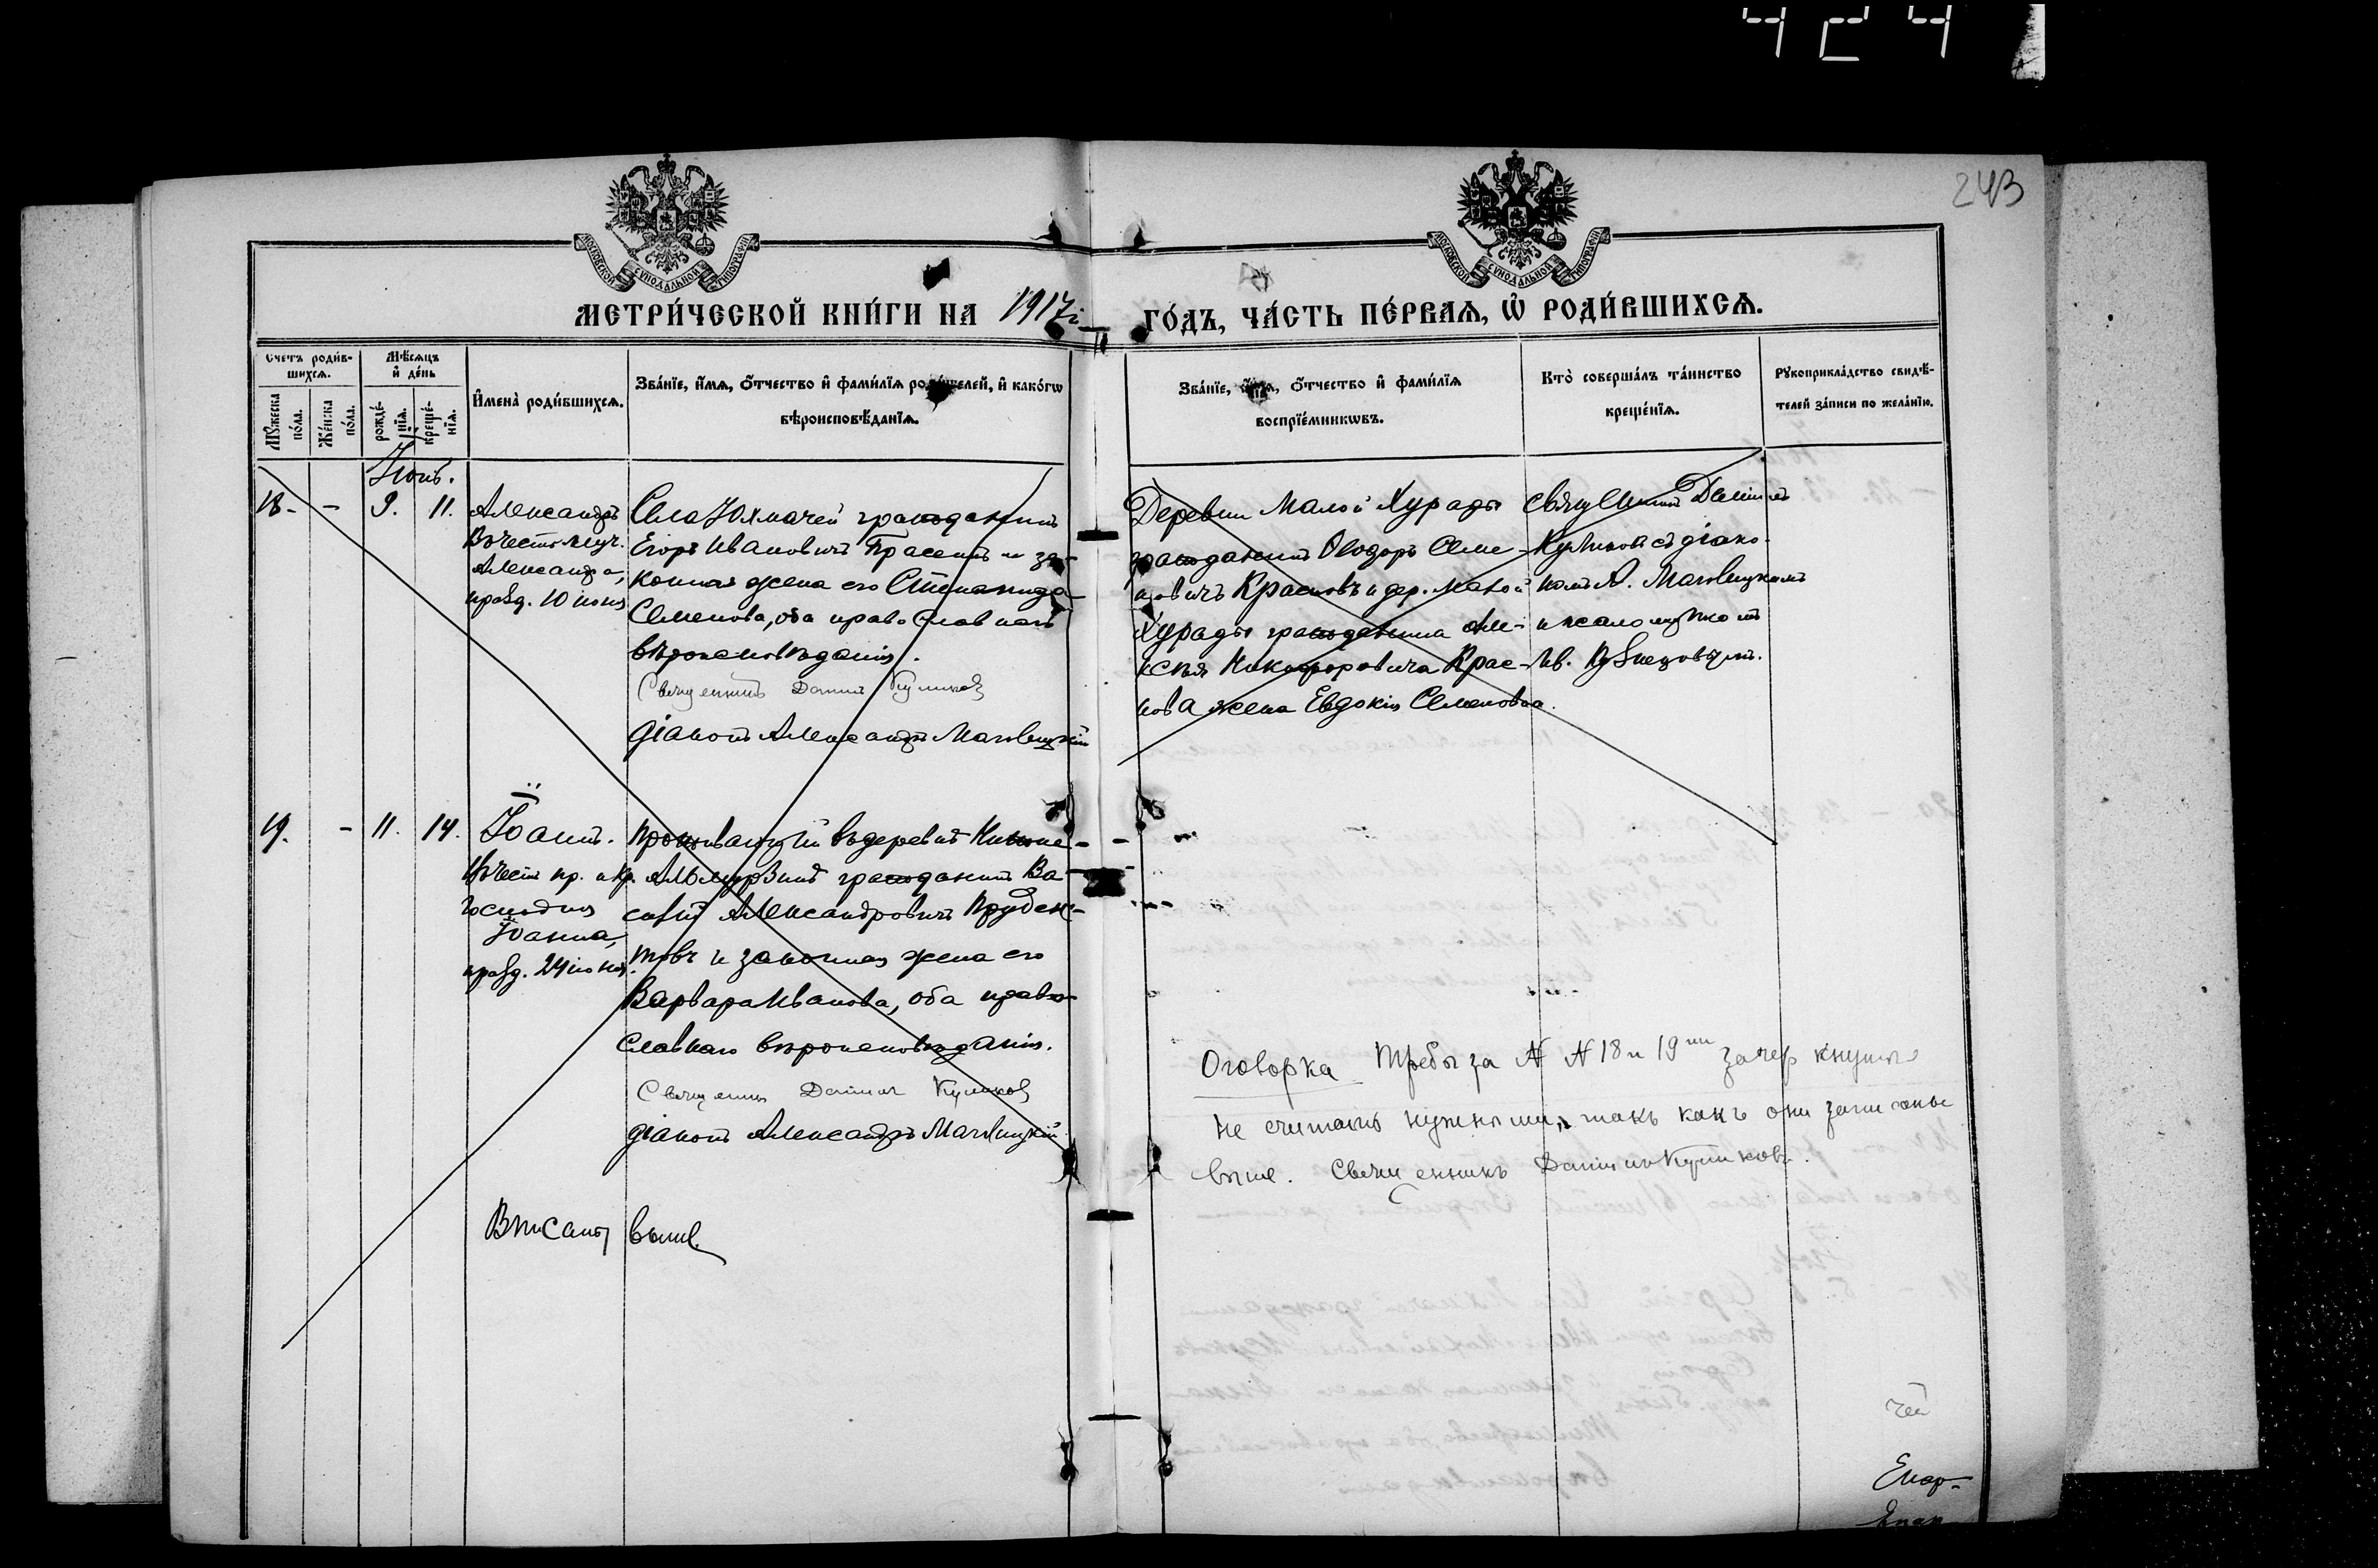 424
243
МОСКОВСКОЙ СУНОДАЛЬНОЙ ТИПОГРАФІИ
МОСКОВСКОЙ СУНОДАЛЬНОЙ ТИПОГРАФІИ
МЕТРИ́ЧЕСКОЙ КНИ́ГИ НА 1917 ГО́ДЪ, ЧА́СТЬ ПЕ́РВАѦ, Ѡ РОДИ́ВШИХСѦ.
Счетъ роди́в-
шихсѧ.
Мꙋжеска по́ла.
Же́нска по́ла.
Мѣ́сѧцъ
и́ де́нь
рожде́-
нїѧ.
креще́-
нїѧ.
И҆мена̀ роди́вшихсѧ.
Зва́нїе, и҆́мѧ, ѻ҆́тчество и҆ фами́лїѧ роди́телей, и҆ како́гѡ
вѣроисповѣ́данїѧ.
Зва́нїе, и҆́мѧ, ѻ҆́тчество и҆ фами́лїѧ
воспрїе́мникѡвъ.
Кто̀ соверша́лъ та́инство
креще́нїѧ.
Рꙋкоприкла́дство свидѣ́-
телей за́писи по жела́нїю.
Іюнь.
18. - 9. 11.
Александръ
Въ честь муч.
Александра,
празд. 10 іюня
Села Юхмачей гражданинъ
Егоръ Ивановичъ и за-
конная жена его Степанида
Семенова, оба православнаго
вѣроисповѣданія.
Священникъ Даніилъ Куликовъ
Діаконъ Александръ
Деревни Малой Хурады
гражданинъ Ѳеодоръ Семе-
новичъ Красновъ и дер. Малой
Хурады гражданина Але-
ксѣя Никифоровича Крас-
нова жена Евдокія Семеновна.
Священникъ Даніилъ
Куликовъ съ діако-
номъ А.
и псаломщикомъ
Ив. Кузнецовымъ.
19. - 11. 14.
Іоаннъ.
Въ честь пр. и кр.
Господня
Іоанна,
празд. 24 іюня.
Проживающій въ деревнѣ
гражданинъ Ва-
силій Александровичъ Пруден-
товъ и законная жена его
Варвара Иванова, оба право-
славнаго вѣроисповѣданія.
Священникъ Даніилъ Куликовъ
Діаконъ Александръ
Вписаны выше.
Оговорка Требы за № № 18 и 19ый зачеркнутые
не считать нужными, такъ какъ они записаны
выше. Священникъ Даніилъ Куликовъ.
чей
Епар-
Епар